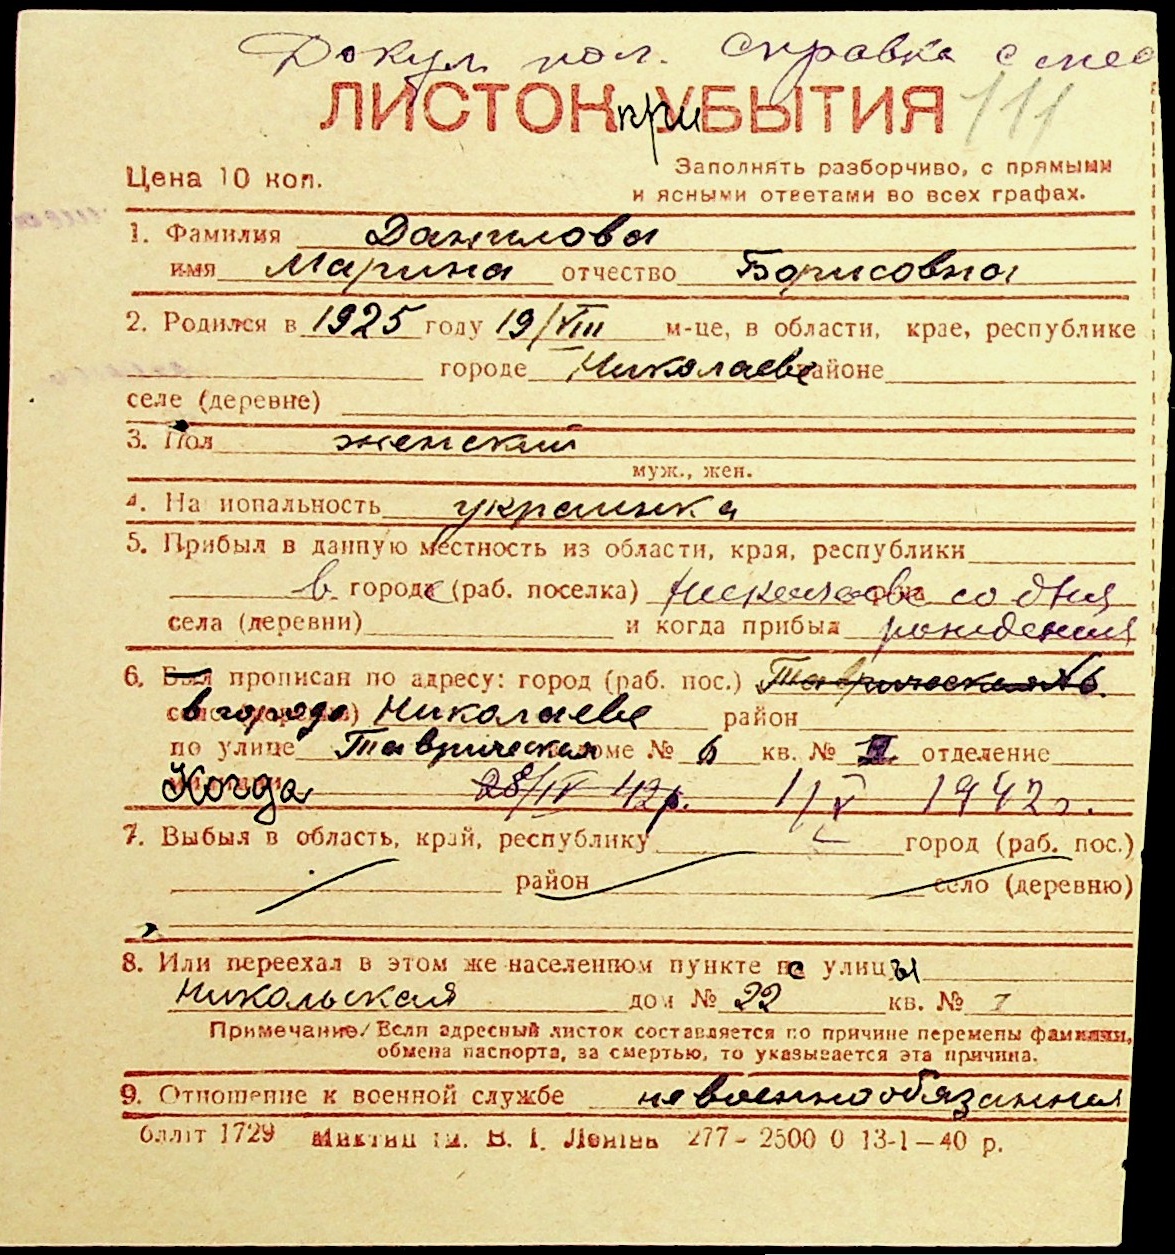 Докум. пол. Справка с мес
ЛИСТОК при УБЫТИЯ 111
Цена 10 коп.
Заполнять разборчиво, с прямыми
и ясными ответами во всех графах.
1. Фамилия Данилова
имя Марина отчество Борисовна
2. Родился в 1925 году 19/VIII м-це, в области, крае, республике
городе Николаеве районе
селе (деревне)
3. Пол женский
муж., жен.
4. На иональность украинка
5. Прибыл в данную местность из области, края, республики
в городе (раб. поселка) Николаеве со дня
села (деревни) и когда прибыл рождения
6. Был прописан по адресу: город (раб. пос.) Таврическая №6.
в городе Николаеве район
по улице Таврическая доме № 6 кв. № 1 отделение
Когда 28/IV 42г. 1/V 1942г.
7. Выбыл в область, край, республику город (раб. пос.)
район село (деревню)
8. Или переехал в этом же населенном пункте с улицы
Никольская дом № 22 кв. № 7
Примечание/ Если адресный листок составляется по причине перемены фамилии,
обмена паспорта, за смертью, то указывается эта причина.
9. Отношение к военной службе невоеннообязанная
блліт 1729 В. І. Леніна 277- 2500 0 13-1-40 р.